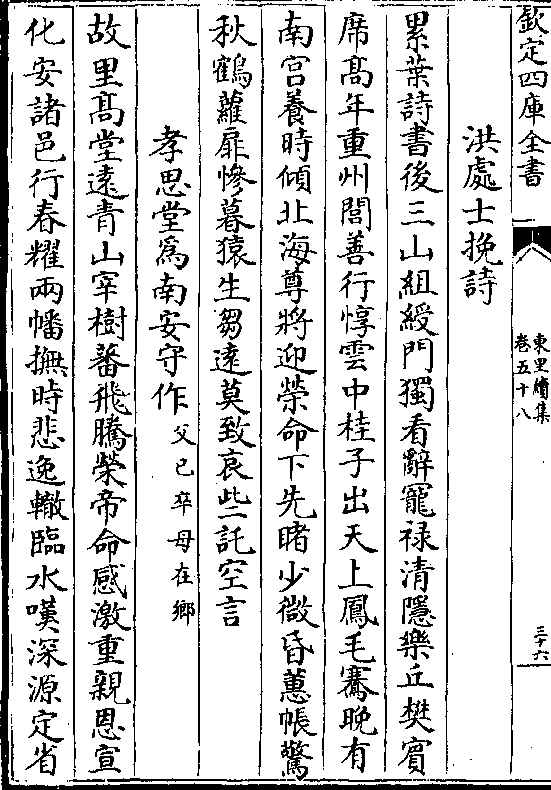 欽定四庫全書
東里續集
卷五十八
三十六
洪處士挽詩
累葉詩書後三山組綬門獨看辭寵祿清隱樂丘樊賓
席髙年重州閭善行惇雲中桂子出天上鳳毛騫晚有
南宫養時傾北海尊將迎榮命下先睹少微昏蕙帳驚
秋鶴蘿扉慘暮猿生芻逺莫致哀些託空言
孝思堂為南安守作父已卒母在鄉
故里髙堂逺青山宰樹蕃飛騰榮帝命感激重親恩宣
化安諸邑行春耀兩幡撫時悲逸轍臨水嘆深源定省